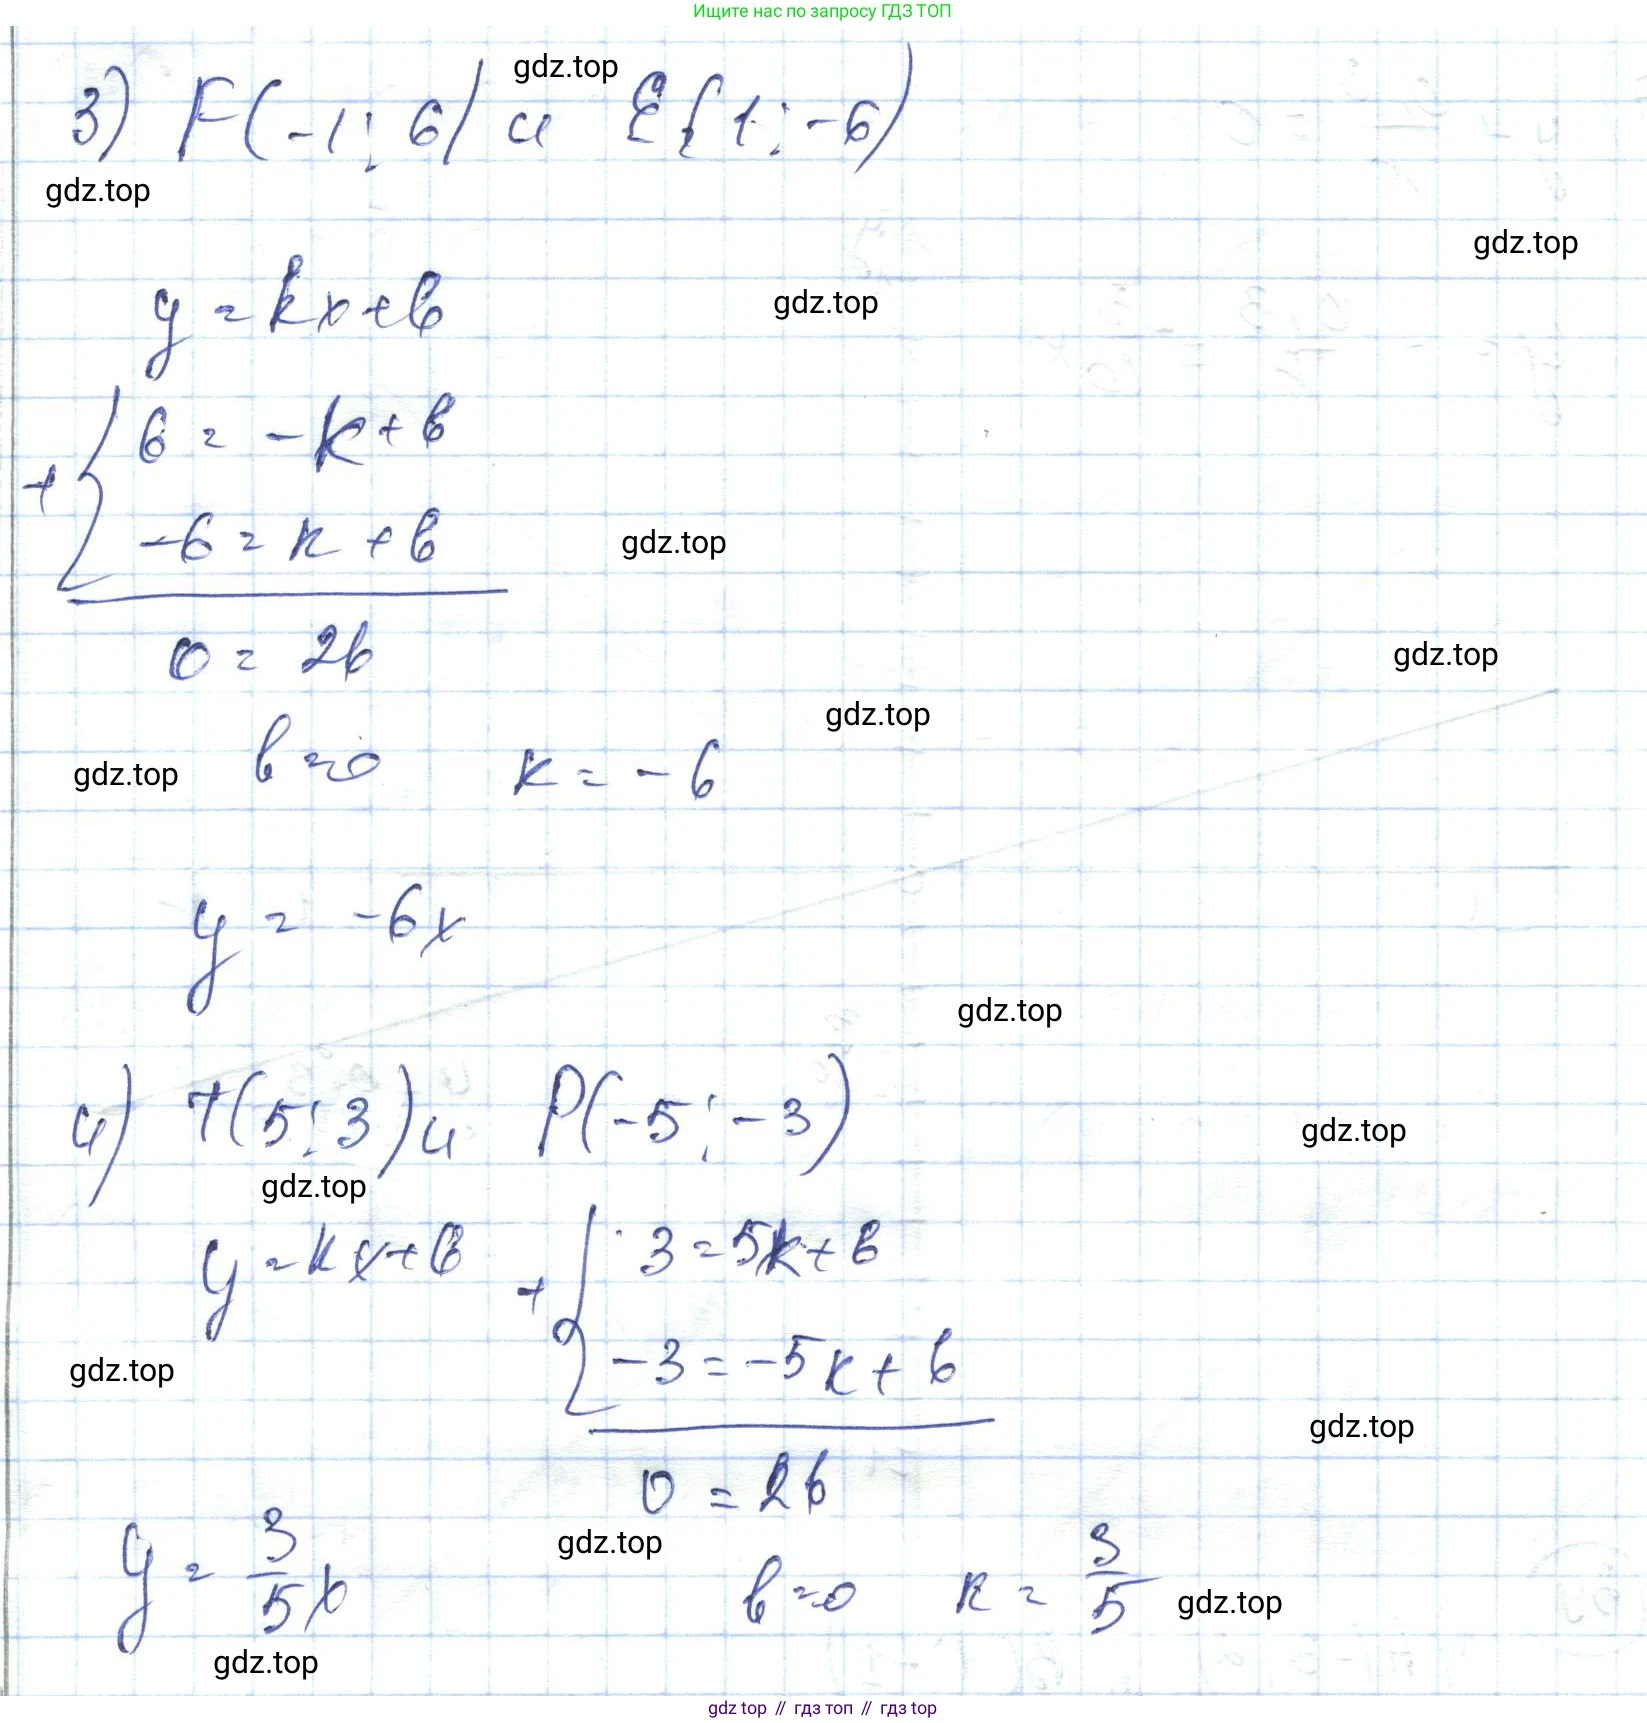 Ищите нас по запросу ГДЗ ТОП
gdz.top
3) F(-1; 6) и E(1; -6)
gdz.top
gdz.top
y = kx+b
gdz.top
6 = -k+b
+
-6 = k+b
gdz.top
0 = 2b
gdz.top
gdz.top
b=0 k = -6
gdz.top
y = -6x
gdz.top
4) T(5; 3) и P(-5; -3)
gdz.top
gdz.top
y=kx+b + 3=5k+b
-3=-5k+b
gdz.top
gdz.top
0 = 2b
y = 3/5 x
gdz.top
b=0 k = 3/5
gdz.top
gdz.top
gdz top // гдз топ // гдз top